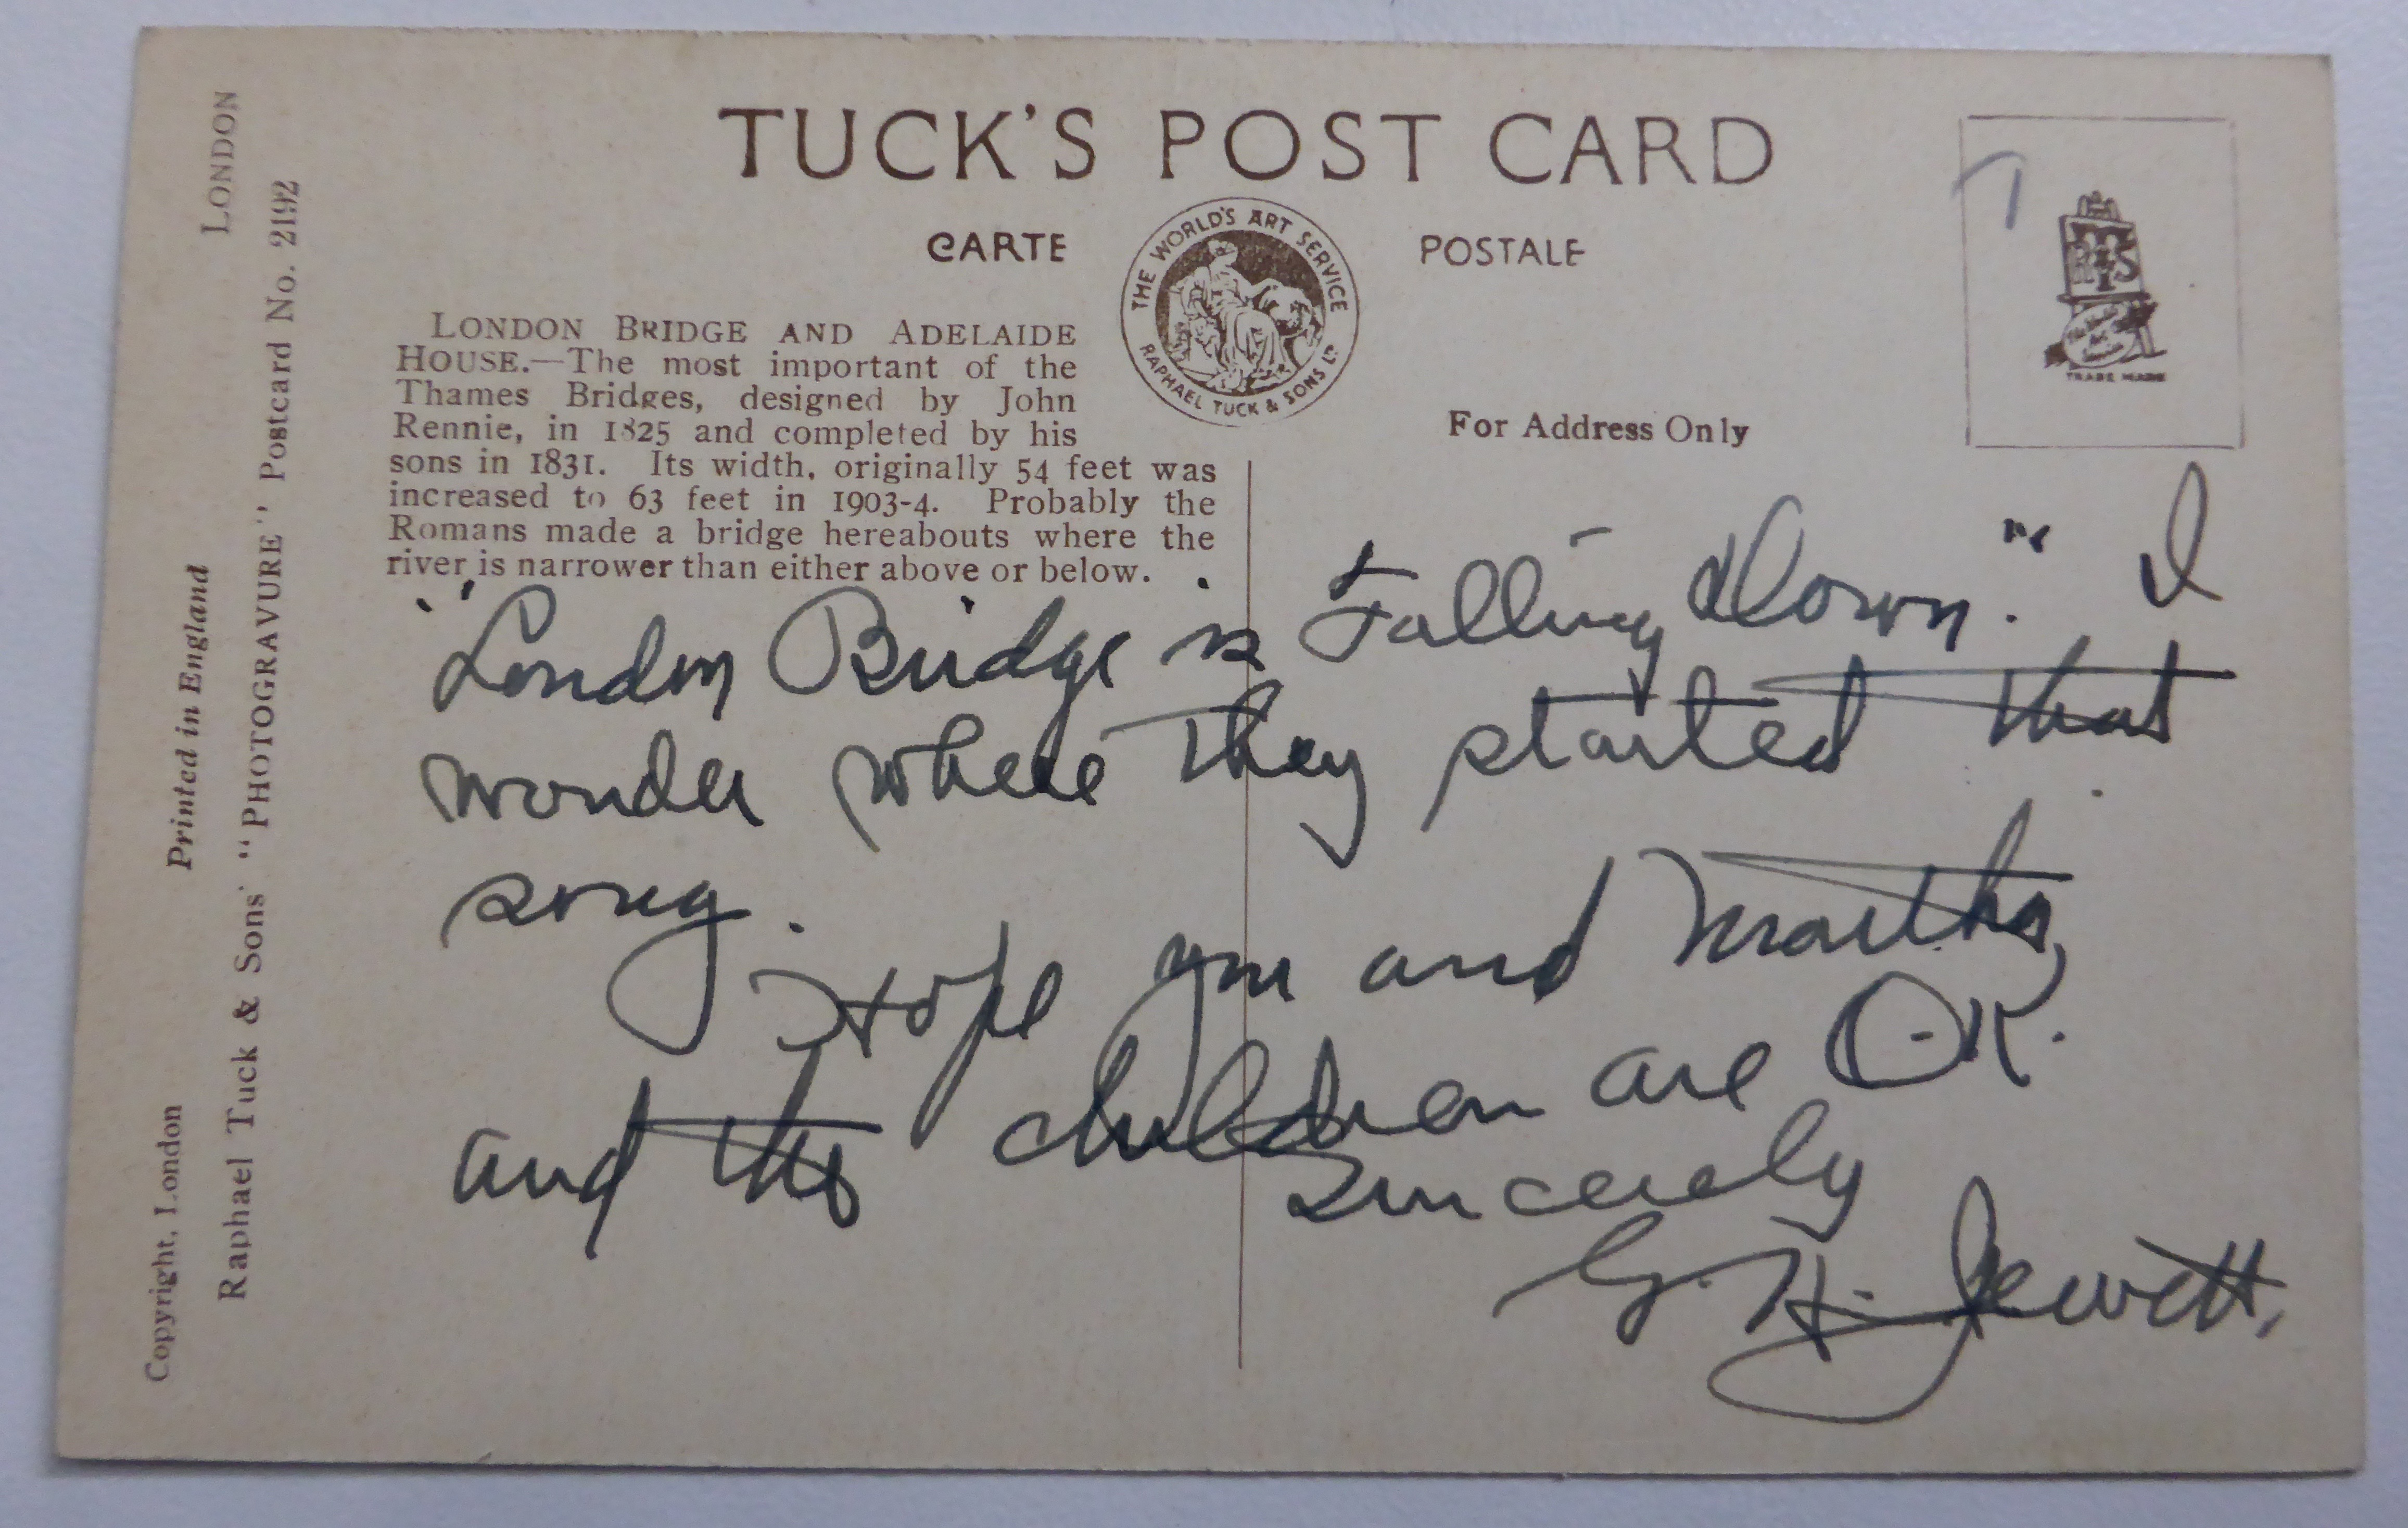 TUCK'S POST CARD
CARTE POSTALE
THE WORLD'S ART SERVICE
RAPHAEL TUCK & SONS LD
LONDON BRIDGE AND ADELAIDE
HOUSE.—The most important of the
Thames Bridges, designed by John
Rennie, in 1825 and completed by his
sons in 1831. Its width, originally 54 feet was
increased to 63 feet in 1903-4. Probably the
Romans made a bridge hereabouts where the
river is narrower than either above or below.
For Address Only
TRADE MARK
"London Bridge is Falling Down." I
wonder where they started that
song.
Hope you and Martha
and the children are O.K.
Sincerely
G. H. Jewett.
LONDON
Raphael Tuck & Sons' "PHOTOGRAVURE" Postcard No. 2192
Printed in England
Copyright, London